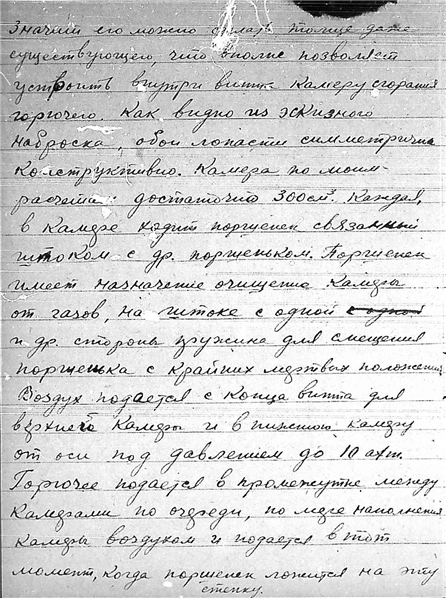 Значит его можно сделать толще даже
существующего, что вполне позволяет
устроить внутри винта камеру сгорания
горючего. Как видно из эскизного
наброска, обои лопасти симметричны
конструктивно. Камера по моим
расчетам: достаточно 300см³. Каждая,
в камере ходит поршенек связанный
штоком с др. поршеньком. Поршенек
имеет назначение очищения камеры
от газов, на штоке с одной с одной
и др. стороны пружина для смещения
поршенька с крайних мертвых положений.
Воздух подается с конца винта для
верхней камеры и в нижнюю камеру
от оси под давлением до 10 атм.
Горючее подается в промежутке между
камерами по очереди, по мере наполнения
камеры воздухом и подается в тот
момент, когда поршенек ложится на эту
стенку.